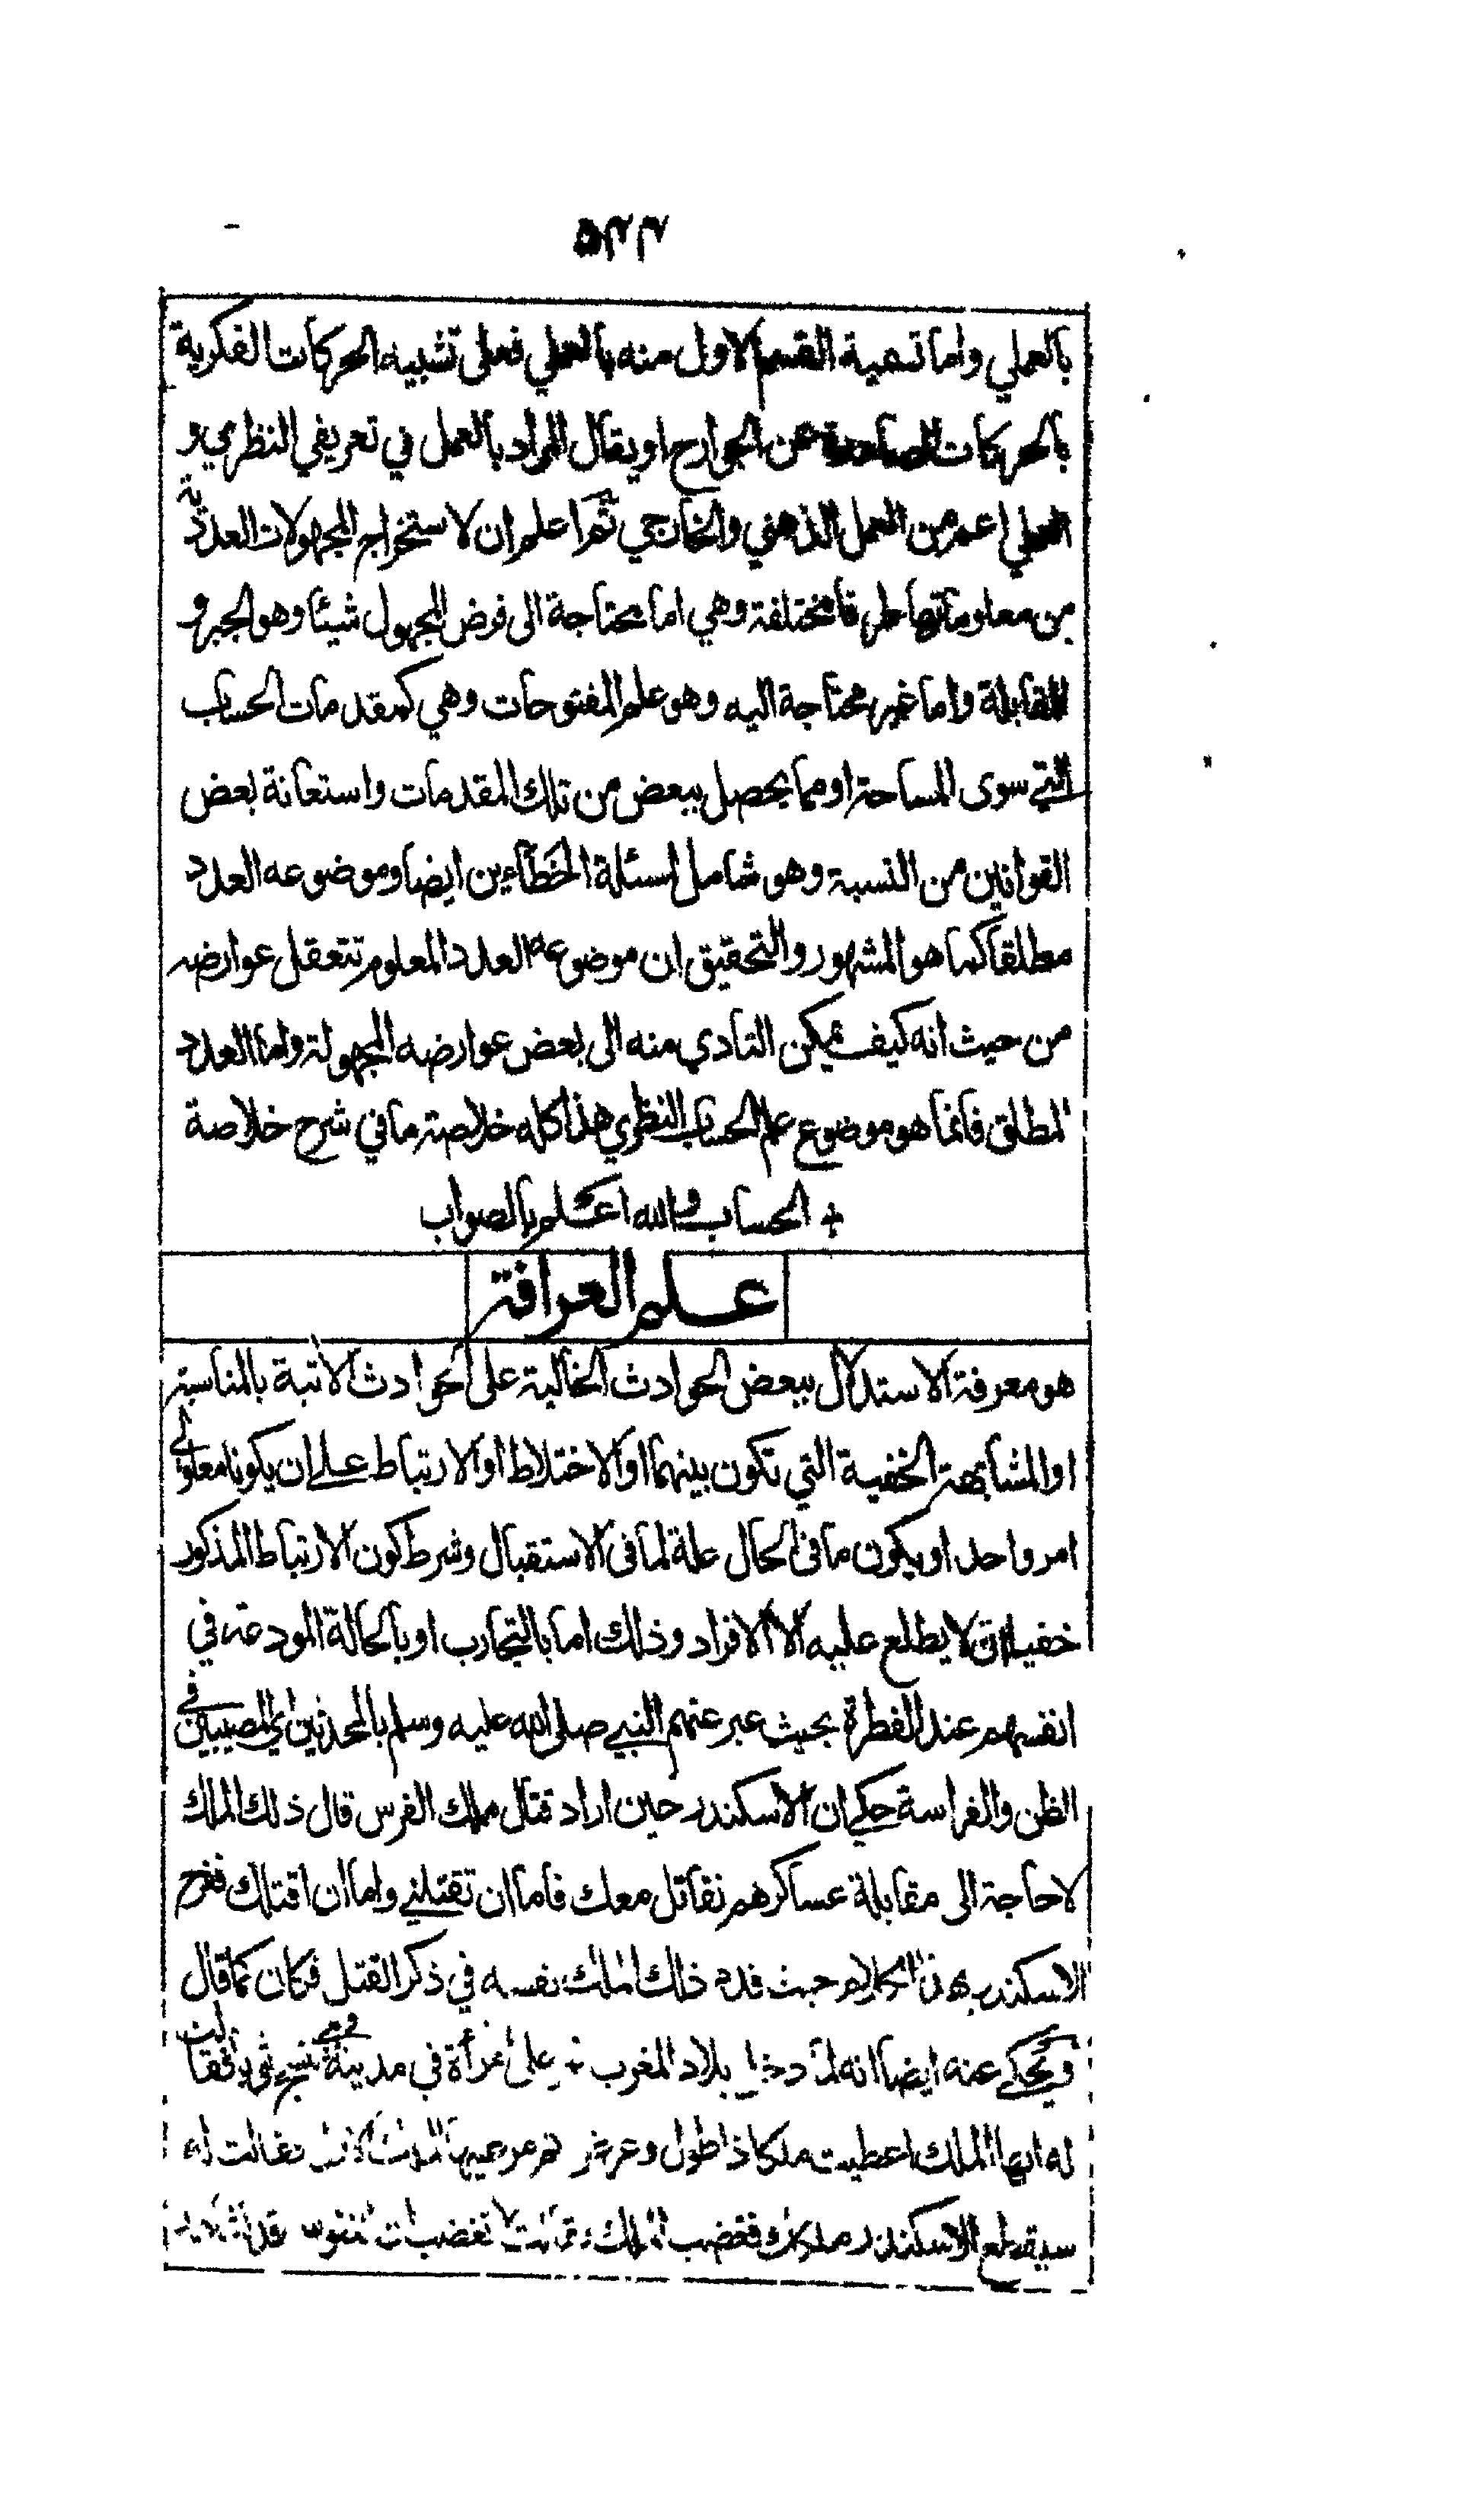 بالعملي واما تسمية القسم الاول منه بالعملي فعلى تشبيه الحركات الفكرية
بالحركات الصادرة عن الجوارح او يقال المراد بالعمل في تعريفي النظري و
العملي اعم من العمل الذهني والخارجي ثم اعلم ان لاستخراج المجهولات العددية
من معلوماتها طرقا مختلفة وهي اما محتاجة الى فرض المجهول شيئا وهو الجبر و
المقابلة واما غير محتاجة اليه وهو علم المفتوحات وهي كمقدمات الحساب
التي سوى المساحة او مما يحصل ببعض من تلك المقدمات واستعانة بعض
القوانين من النسبة وهو شامل لسئلة الخطاءين ايضا وموضوعه العدد
مطلقا كما هو المشهور والتحقيق ان موضوعه العدد المعلوم تتعقل عوارضه
من حيث انه كيف يمكن التادي منه الى بعض عوارضه المجهولة واما العدد
المطلق فانما هو موضوع علم الحساب النظري هذا كله خلاصة ما في شرح خلاصة
الحساب والله اعلم بالصواب
علم العرافة
هو معرفة الاستدلال ببعض الحوادث الخالية على الحوادث الآتية بالمناسبة
او المشابهة الخفية التي تكون بينهما او الاختلاط او الارتباط على ان يكونا معلولي
امر واحد او يكون ما في الحال علة لما في الاستقبال وشرط كون الارتباط المذكور
خفيا ان لا يطلع عليه الا الافراد وذلك اما بالتجارب او بالحالة المودعة في
انفسهم عند الفطرة بحيث عبر عنهم النبي صلى الله عليه وسلم بالمحدثين اي المصيبين في
الظن والفراسة حكي ان الاسكندر حين اراد قتال ملك الفرس قال ذلك الملك
لا حاجة الى مقابلة عساكرهم نقاتل معك فاما ان تقتلني واما ان اقتلك ففرح
الاسكندر بهذا الكلام حيث قدم ذلك الملك نفسه في ذكر القتل فكان كما قال
ويحكى عنه ايضا انه لما دخل بلاد المغرب على امرأة في مدينة تنسج ثوبا فقالت
له ايها الملك اعطيت ملكا ذا طول وعرض ثم مر عليها فقالت له
سيقطع الاسكندر ملكك فغضب الملك فقالت لا تغضب ان النفوس قد